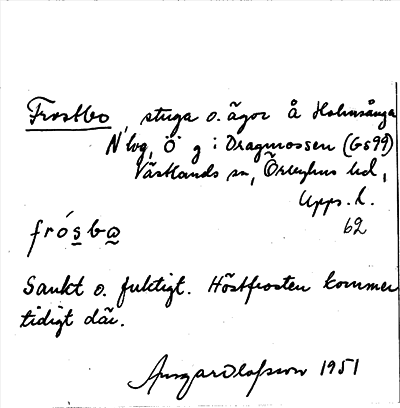 Frostbo, stuga o. ägor å Holmsånga
N lvg, Ö g i Dragmossen (GS99)
Västlands sn, Örbyhus hd,
Upps. l.
62
frósba
Sankt o. fuktigt. Höstfrosten kommer
tidigt där.
Ansgar Olofsson 1951